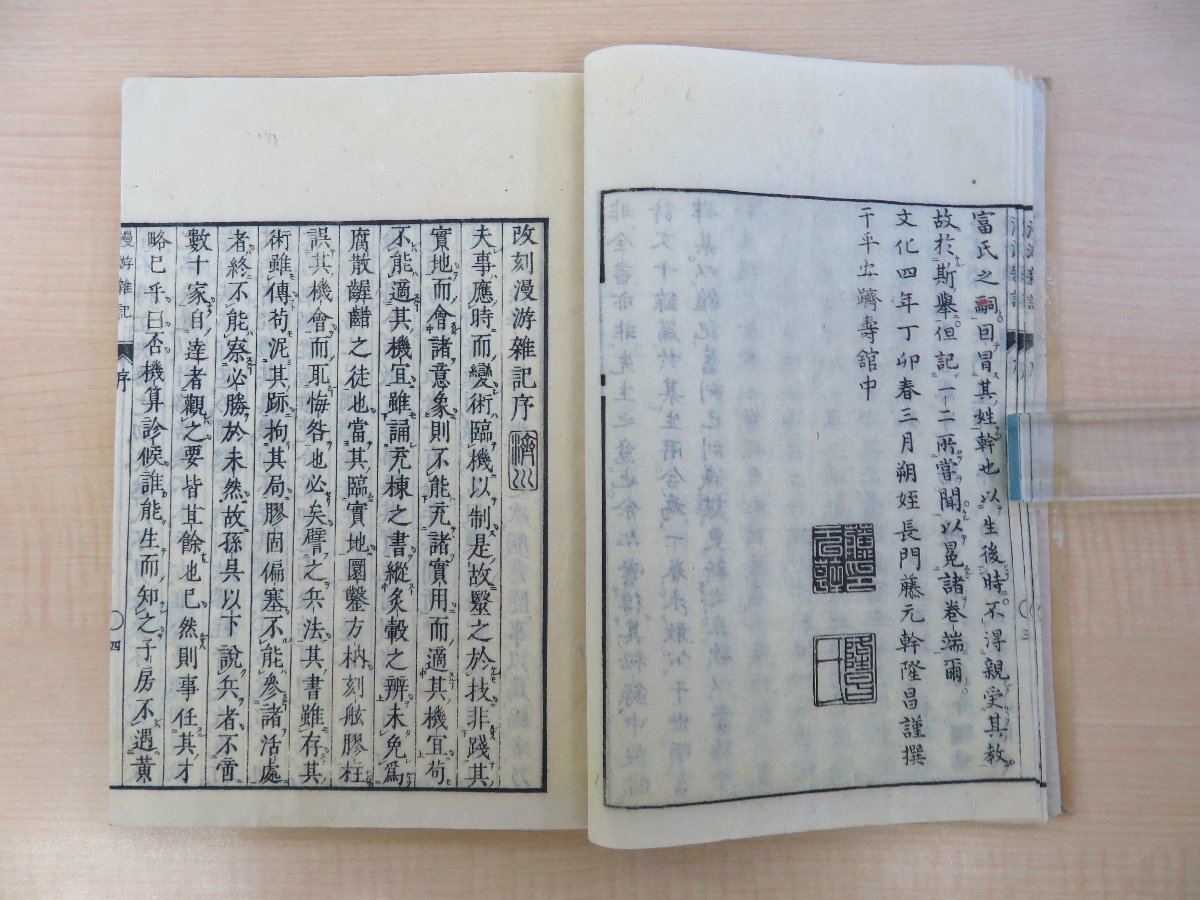 富氏之嗣因冒其姓幹也以生後時不得親受其教
故於斯舉但記一二所嘗聞以冕諸卷端爾
文化四年丁卯春三月朔姪長門藤元幹隆昌謹撰
于平安躋壽館中
改刻漫游雜記序
濟川
夫事應時而變術臨機以制是故毉之於技非踐其
實地而會諸意象則不能充諸實用而適其機宜苟
不能適其機宜雖誦充棟之書縱炙轂之辨未免爲
腐散齷齪之徒也當其臨實地圜鑿方枘刻舷膠柱
誤其機會而取悔咎也必矣譬之兵法其書雖存其
術雖傳苟泥其跡拘其局膠固偏塞不能參諸活處
者終不能察必勝於未然故孫吳以下說兵者不啻
數十家自達者觀之要皆其餘也已然則事任其才
略已乎曰否機算診候誰能生而知之子房不遇黃
漫游雜記
序
四
三